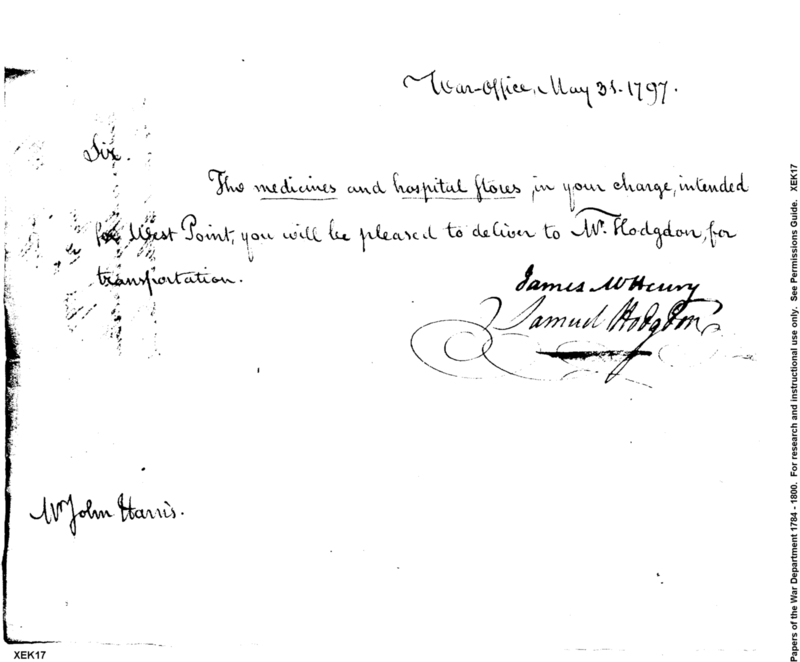 War-Office, May 31. 1797.
Sir.
The medicines and hospital stores, in your charge, intended
for West Point, you will be pleased to deliver to Mr. Hodgdon, for
transportation.
James McHenry
Samuel Hodgdon
Mr John Harris.
XEK17
Papers of the War Department 1784 - 1800. For research and instructional use only. See Permissions Guide. XEK17